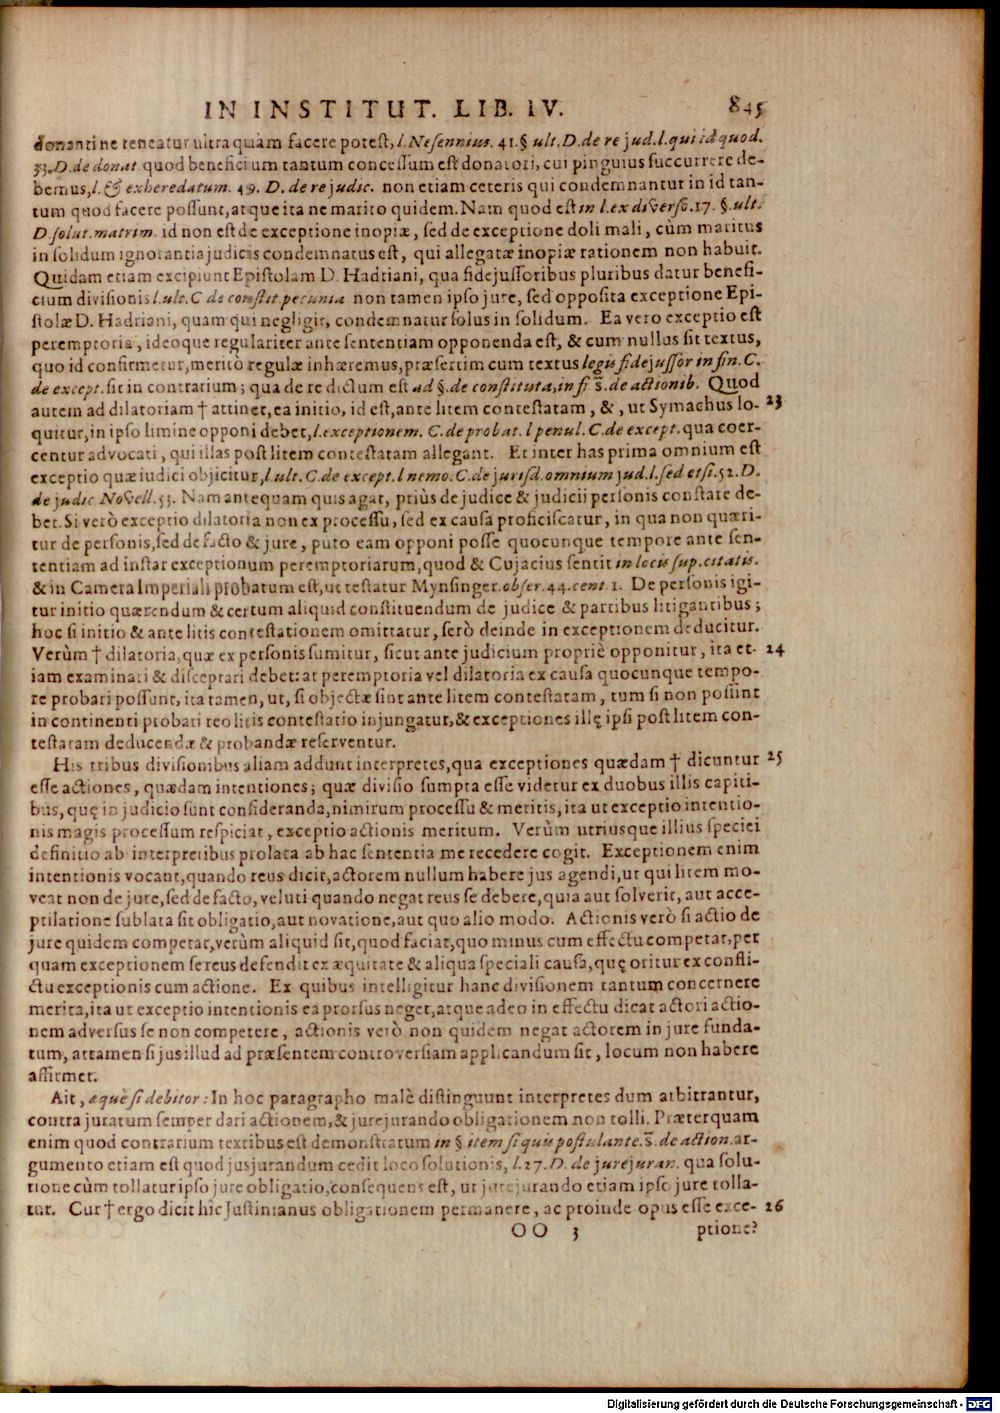 IN INSTITUT. LIB. IV. 845
donantine teneatur ultra quàm facere potest, l. Nesennius. 41. § ult. D. de re jud. l. qui id quod.
33. D. de donat. quod beneficium tantum concessum est donatori, cui pinguius succurrere de-
bemus, l. & exheredatum. 49. D. de re judic. non etiam ceteris qui condemnantur in id tan-
tum quod facere possunt, atque ita ne marito quidem. Nam quod est in l. ex diverso. 17. §. ult.
D. solut. matrim. id non est de exceptione inopiæ, sed de exceptione doli mali, cùm maritus
in solidum ignorantia judicis condemnatus est, qui allegatæ inopiæ rationem non habuit.
Quidam etiam excipiunt Epistolam D. Hadriani, qua fidejussoribus pluribus datur benefi-
cium divisionis l. ult. C de constit pecunia non tamen ipso jure, sed opposita exceptione Epi-
stolæ D. Hadriani, quam qui negligit, condemnatur solus in solidum. Ea vero exceptio est
peremptoria, ideoque regulariter ante sententiam opponenda est, & cum nullus sit textus,
quo id confirmetur, meritò regulæ inhæremus, præsertim cum textus legis fidejussor in fin. C.
de except. sit in contrarium; qua de re dictum est ad §. de constituta, in fi. s. de actionib. Quod
autem ad dilatoriam † attinet, ea initio, id est, ante litem contestatam, &, ut Symachus lo- 23
quitur, in ipso limine opponi debet, l. exceptionem. C. de probat. l penul. C. de except. qua coer-
centur advocati, qui illas post litem contestatam allegant. Et inter has prima omnium est
exceptio quæ iudici objicitur, l. ult. C. de except. l nemo. C. de jurisd. omnium jud. l. sed etsi. 52. D.
de judic Novell. 53. Nam antequam quis agat, priùs de judice & judicii personis constare de-
bet. Si verò exceptio dilatoria non ex processu, sed ex causa proficiscatur, in qua non quæri-
tur de personis, sed de facto & jure, puto eam opponi posse quocunque tempore ante sen-
tentiam ad instar exceptionum peremptoriarum, quod & Cujacius sentit in locis sup. citatis.
& in Camera Imperiali probatum est, ut testatur Mynsinger. obser. 44. cent. 1. De personis igi-
tur initio quærendum & certum aliquid constituendum de judice & partibus litigantibus;
hoc si initio & ante litis contestationem omittatur, serò deinde in exceptionem deducitur.
Verùm † dilatoria, quæ ex personis sumitur, sicut ante judicium propriè opponitur, ita et- 24
iam examinari & disceptari debet: at peremptoria vel dilatoria ex causa quocunque tempo-
re probari possunt, ita tamen, ut, si objectæ sint ante litem contestatam, tum si non possint
in continenti probari reo litis contestatio injungatur, & exceptiones illę ipsi post litem con-
testatam deducendæ & probandæ reserventur.
His tribus divisionibus aliam addunt interpretes, qua exceptiones quædam † dicuntur 25
esse actiones, quædam intentiones; quæ divisio sumpta esse videtur ex duobus illis capiti-
bus, quę in judicio sunt consideranda, nimirum processu & meritis, ita ut exceptio intentio-
nis magis processum respiciat, exceptio actionis meritum. Verùm utriusque illius speciei
definitio ab interpretibus prolata ab hac sententia me recedere cogit. Exceptionem enim
intentionis vocant, quando reus dicit, actorem nullum habere jus agendi, ut qui litem mo-
veat non de jure, sed de facto, veluti quando negat reus se debere, quia aut solverit, aut acce-
ptilatione sublata sit obligatio, aut novatione, aut quo alio modo. Actionis verò si actio de
jure quidem competat, verùm aliquid sit, quod faciat, quo minus cum effectu competat, per
quam exceptionem se reus defendit ex æquitate & aliqua speciali causa, quę oritur ex confli-
ctu exceptionis cum actione. Ex quibus intelligitur hanc divisionem tantum concernere
merita, ita ut exceptio intentionis ea prorsus neget, atque adeo in effectu dicat actori actio-
nem adversus se non competere, actionis verò non quidem negat actorem in jure funda-
tum, attamen si jus illud ad præsentem controversiam applicandum sit, locum non habere
affirmet.
Ait, æquè si debitor: In hoc paragrapho malè distinguunt interpretes dum arbitrantur,
contra juratum semper dari actionem, & jurejurando obligationem non tolli. Præterquam
enim quod contrarium textibus est demonstratum in § item si quis postulante. s. de action. ar-
gumento etiam est quod jusjurandum cedit loco solutionis, l. 27. D. de jurejuran. qua solu-
tione cùm tollatur ipso jure obligatio, consequens est, ut jurejurando etiam ipso jure tolla-
tur. Cur † ergo dicit hîc Justinianus obligationem permanere, ac proinde opus esse exce- 26
OO 3 ptione?
Digitalisierung gefördert durch die Deutsche Forschungsgemeinschaft - DFG